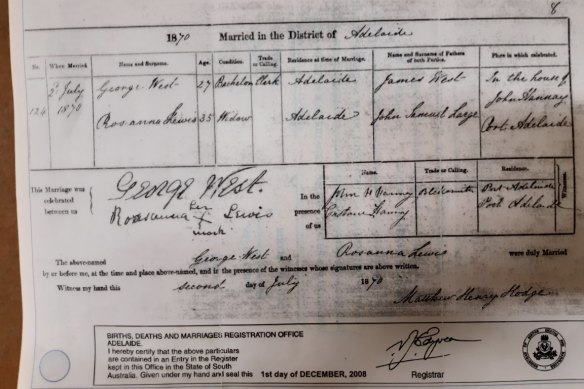 8
1870 Married in the District of Adelaide
No. When Married Name and Surname. Age. Condition. Trade or Calling. Residence at time of Marriage. Name and Surname of Fathers of both Parties. Place in which celebrated.
124 2d July 1870 George West 27 Bachelor Clerk Adelaide James West In the house of
John Hannay
Rosanna Lewis 35 Widow Adelaide John Samuel Port Adelaide
This Marriage was celebrated between us
GEORGE WEST.
Rosanna Lewis
her
X
mark
In the presence of us
Name. Trade or Calling. Residence. Witnesses.
John Hannay Blacksmith Port Adelaide
Hannay Port Adelaide
The above-named George West and Rosanna Lewis were duly Married
by or before me, at the time and place above-named, and in the presence of the witnesses whose signatures are above written.
Witness my hand this second day of July 1870
Matthew Henry Hodge
BIRTHS, DEATHS AND MARRIAGES REGISTRATION OFFICE
ADELAIDE.
I hereby certify that the above particulars
are contained in an Entry in the Register
kept in this Office in the State of South
Australia. Given under my hand and seal this 1st day of DECEMBER, 2008
Registrar